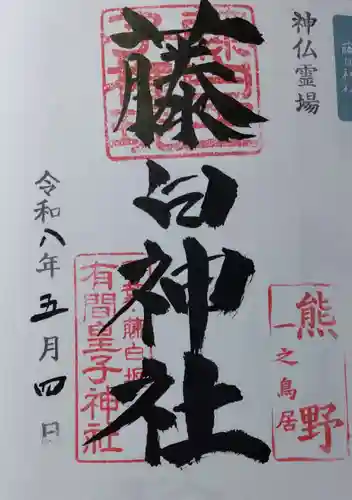 神仏霊場
藤白神社
熊野
一之鳥居
有間皇子神社
令和八年五月四日